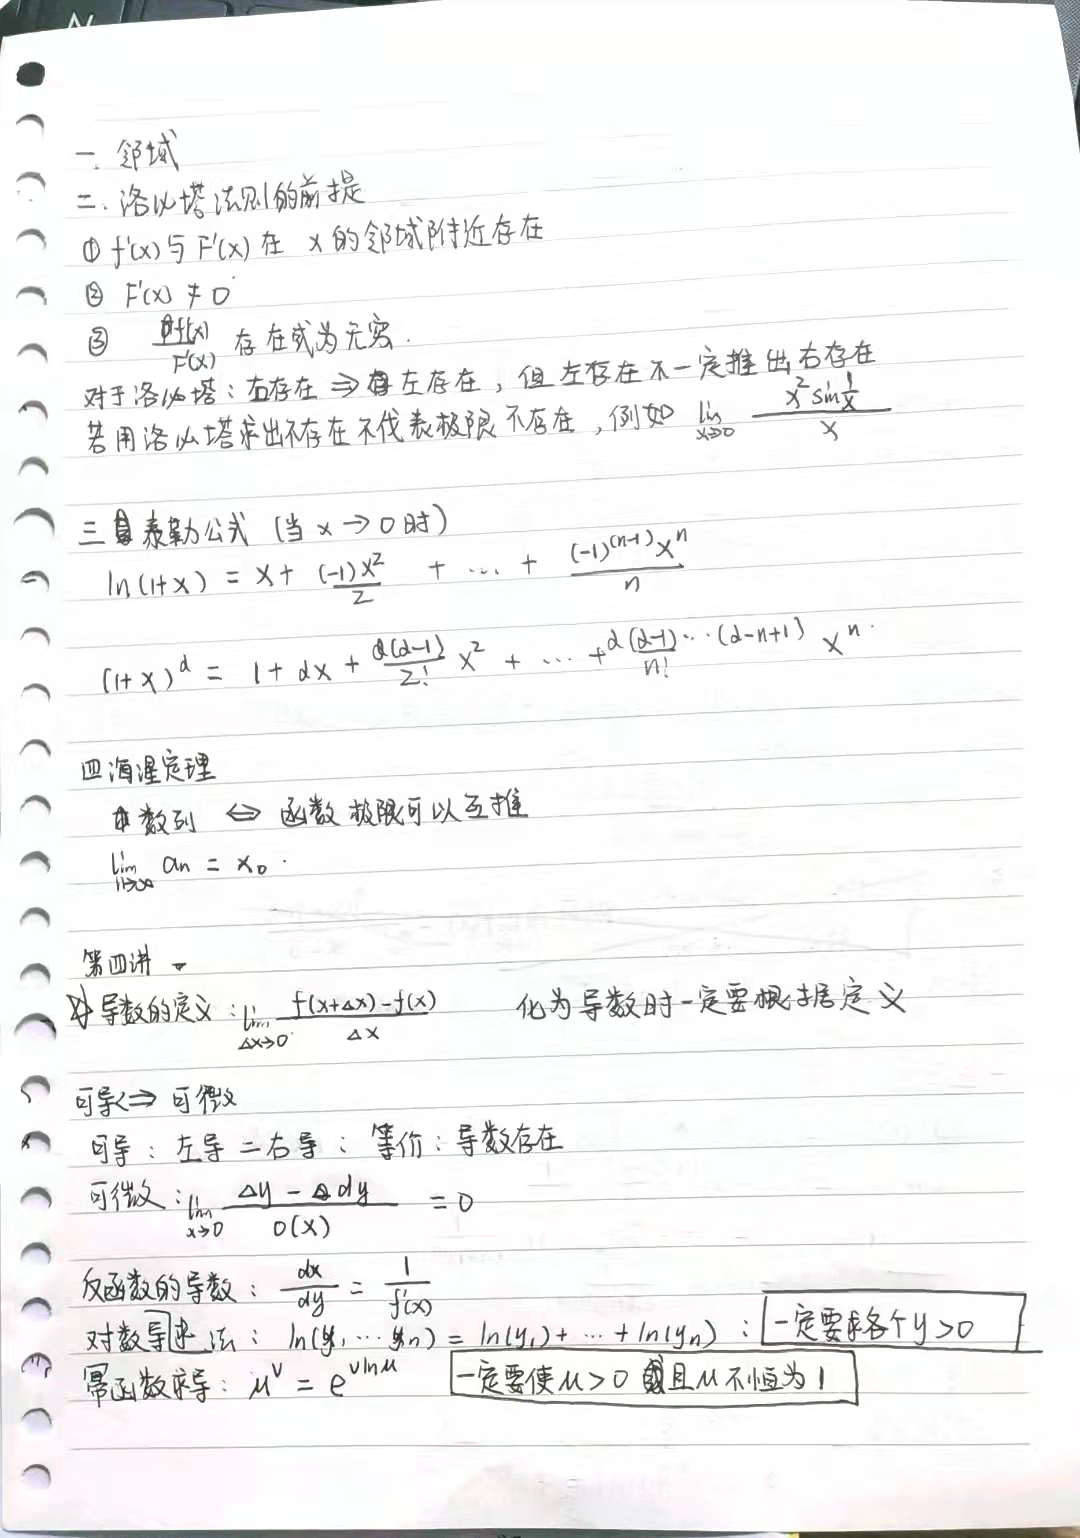 一. 邻域
二. 洛必塔法则的前提
① f'(x)与F'(x)在 x的邻域附近存在
② F'(x) ≠ 0
③ f'(x)/F'(x) 存在或为无穷.
对于洛必塔：右存在 ⇒ 左存在，但左存在不一定推出右存在
若用洛必塔求出不存在不代表极限不存在，例如 lim x→0 (x² sin 1/x)/x
三 泰勒公式 (当 x → 0 时)
ln(1+x) = x + (-1)x²/2 + … + (-1)^(n-1) x^n/n
(1+x)^α = 1 + αx + α(α-1)/2! x² + … + α(α-1)…(α-n+1)/n! x^n.
四 海涅定理
数列 ⇔ 函数 极限可以互推
lim n→∞ an = x₀.
第四讲
导数的定义：lim Δx→0 (f(x+Δx)-f(x))/Δx 化为导数时一定要根据定义
可导⇔可微
可导：左导 = 右导：等价：导数存在
可微：lim x→0 (Δy - dy)/o(x) = 0
反函数的导数：dx/dy = 1/f'(x)
对数导求法：ln(y₁…yn) = ln(y₁)+…+ln(yn)：一定要求各个y>0
幂函数求导：μ^v = e^(v ln μ) 一定要使μ>0 且μ不恒为1